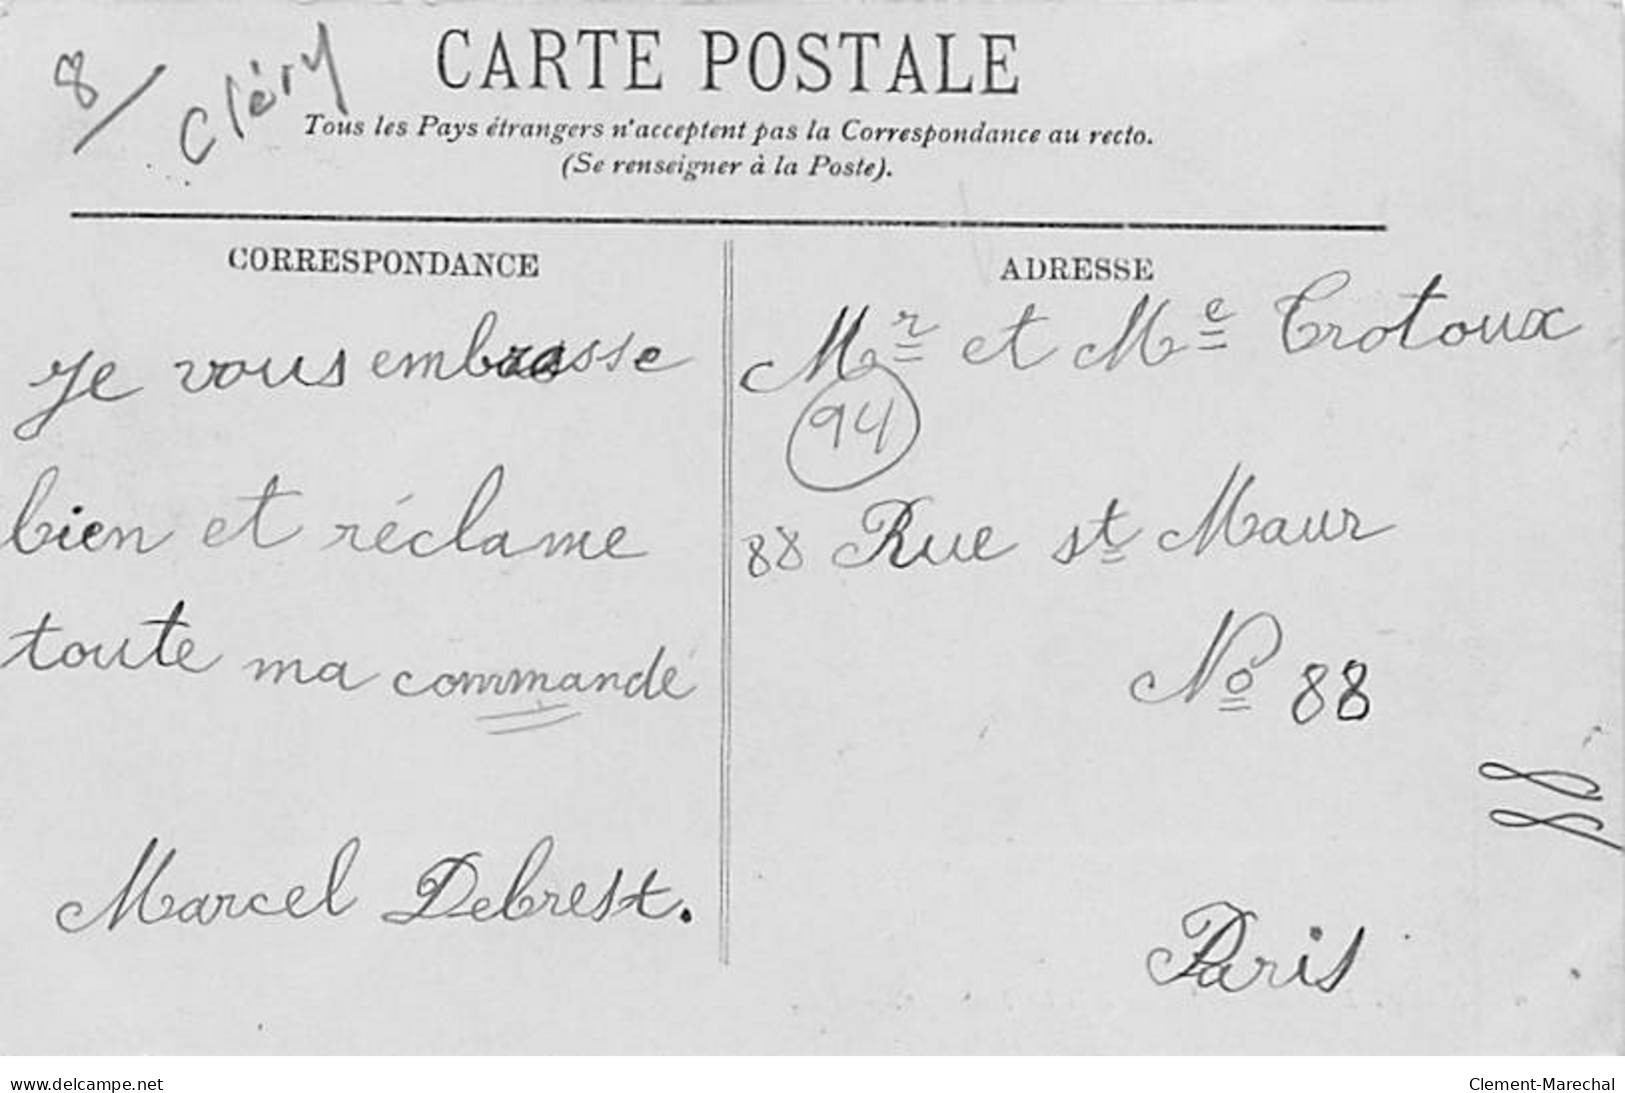 8/ Cléry
CARTE POSTALE
Tous les Pays étrangers n'acceptent pas la Correspondance au recto.
(Se renseigner à la Poste).
CORRESPONDANCE
Je vous embrasse
bien et réclame
toute ma commande
Marcel Debrest.
ADRESSE
Mr et Me Trotoux
94
88 Rue st Maur
No 88
Paris
www.delcampe.net
Clement-Marechal